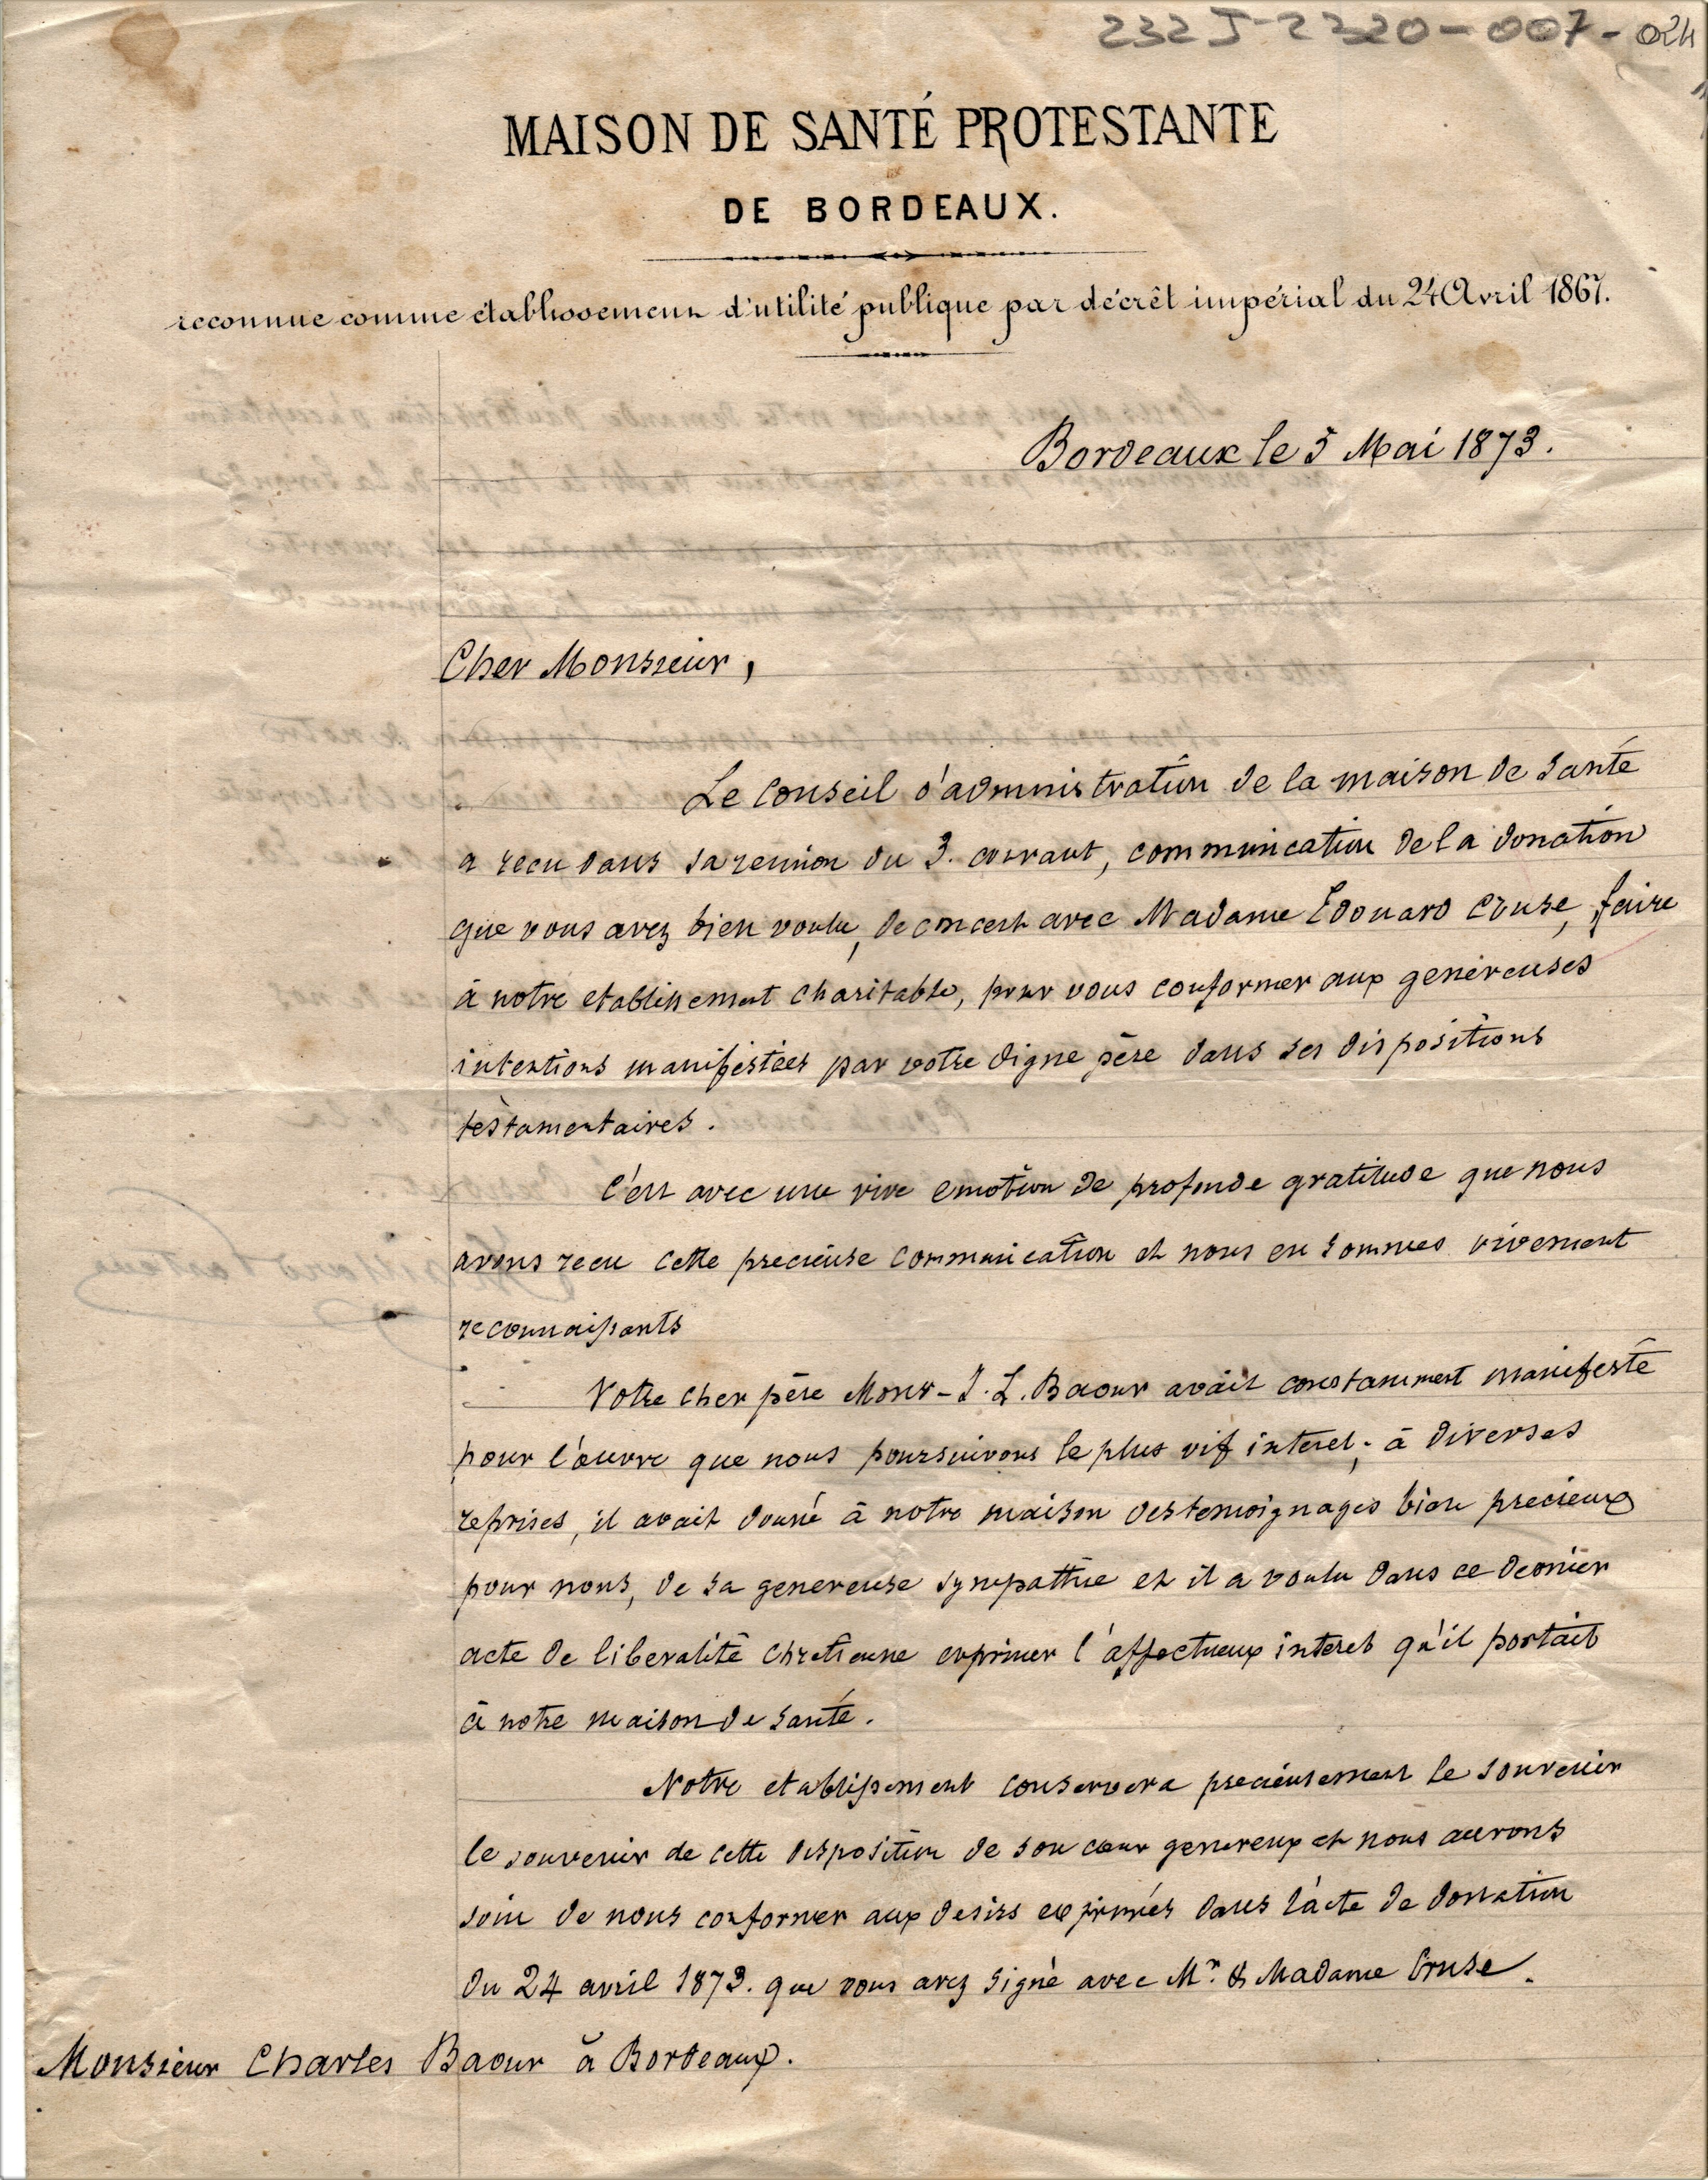 232 J-2320-007-024
1
MAISON DE SANTÉ PROTESTANTE
DE BORDEAUX.
reconnue comme établissement d'utilité publique par décrêt impérial du 24 Avril 1867.
Bordeaux le 5 Mai 1873.
Cher Monsieur,
Le Conseil d'administration de la maison de Santé
a recu dans sa reunion du 3. courant, communication de la donation
que vous avez bien voulu, de concert avec Madame Edouard Cruse, faire
à notre etablissement charitable, pour vous conformer aux genéreuses
intentions manifestées par votre digne père dans ses dispositions
testamentaires.
C'est avec une vive emotion de profonde gratitude que nous
avons recu cette precieuse communication et nous en sommes vivement
reconnaissants
Votre cher père Monsr J. L. Baour avait constamment manifesté
pour l'œuvre que nous poursuivons le plus vif interet; à diverses
reprises, il avait donné à notre maison des temoignages bien precieux
pour nous, de sa genereuse sympathie et il a voulu dans ce dernier
acte de liberalité chretienne exprimer l'affectueux interet qu'il portait
à notre maison de santé.
Notre etablissement conservera precieusement le souvenir
le souvenir de cette disposition de son cœur genereux et nous aurons
soin de nous conformer aux desirs exprimés dans l'acte de donation
du 24 avril 1873. que vous avez signé avec Mr. & Madame Cruse.
Monsieur Charles Baour à Bordeaux.